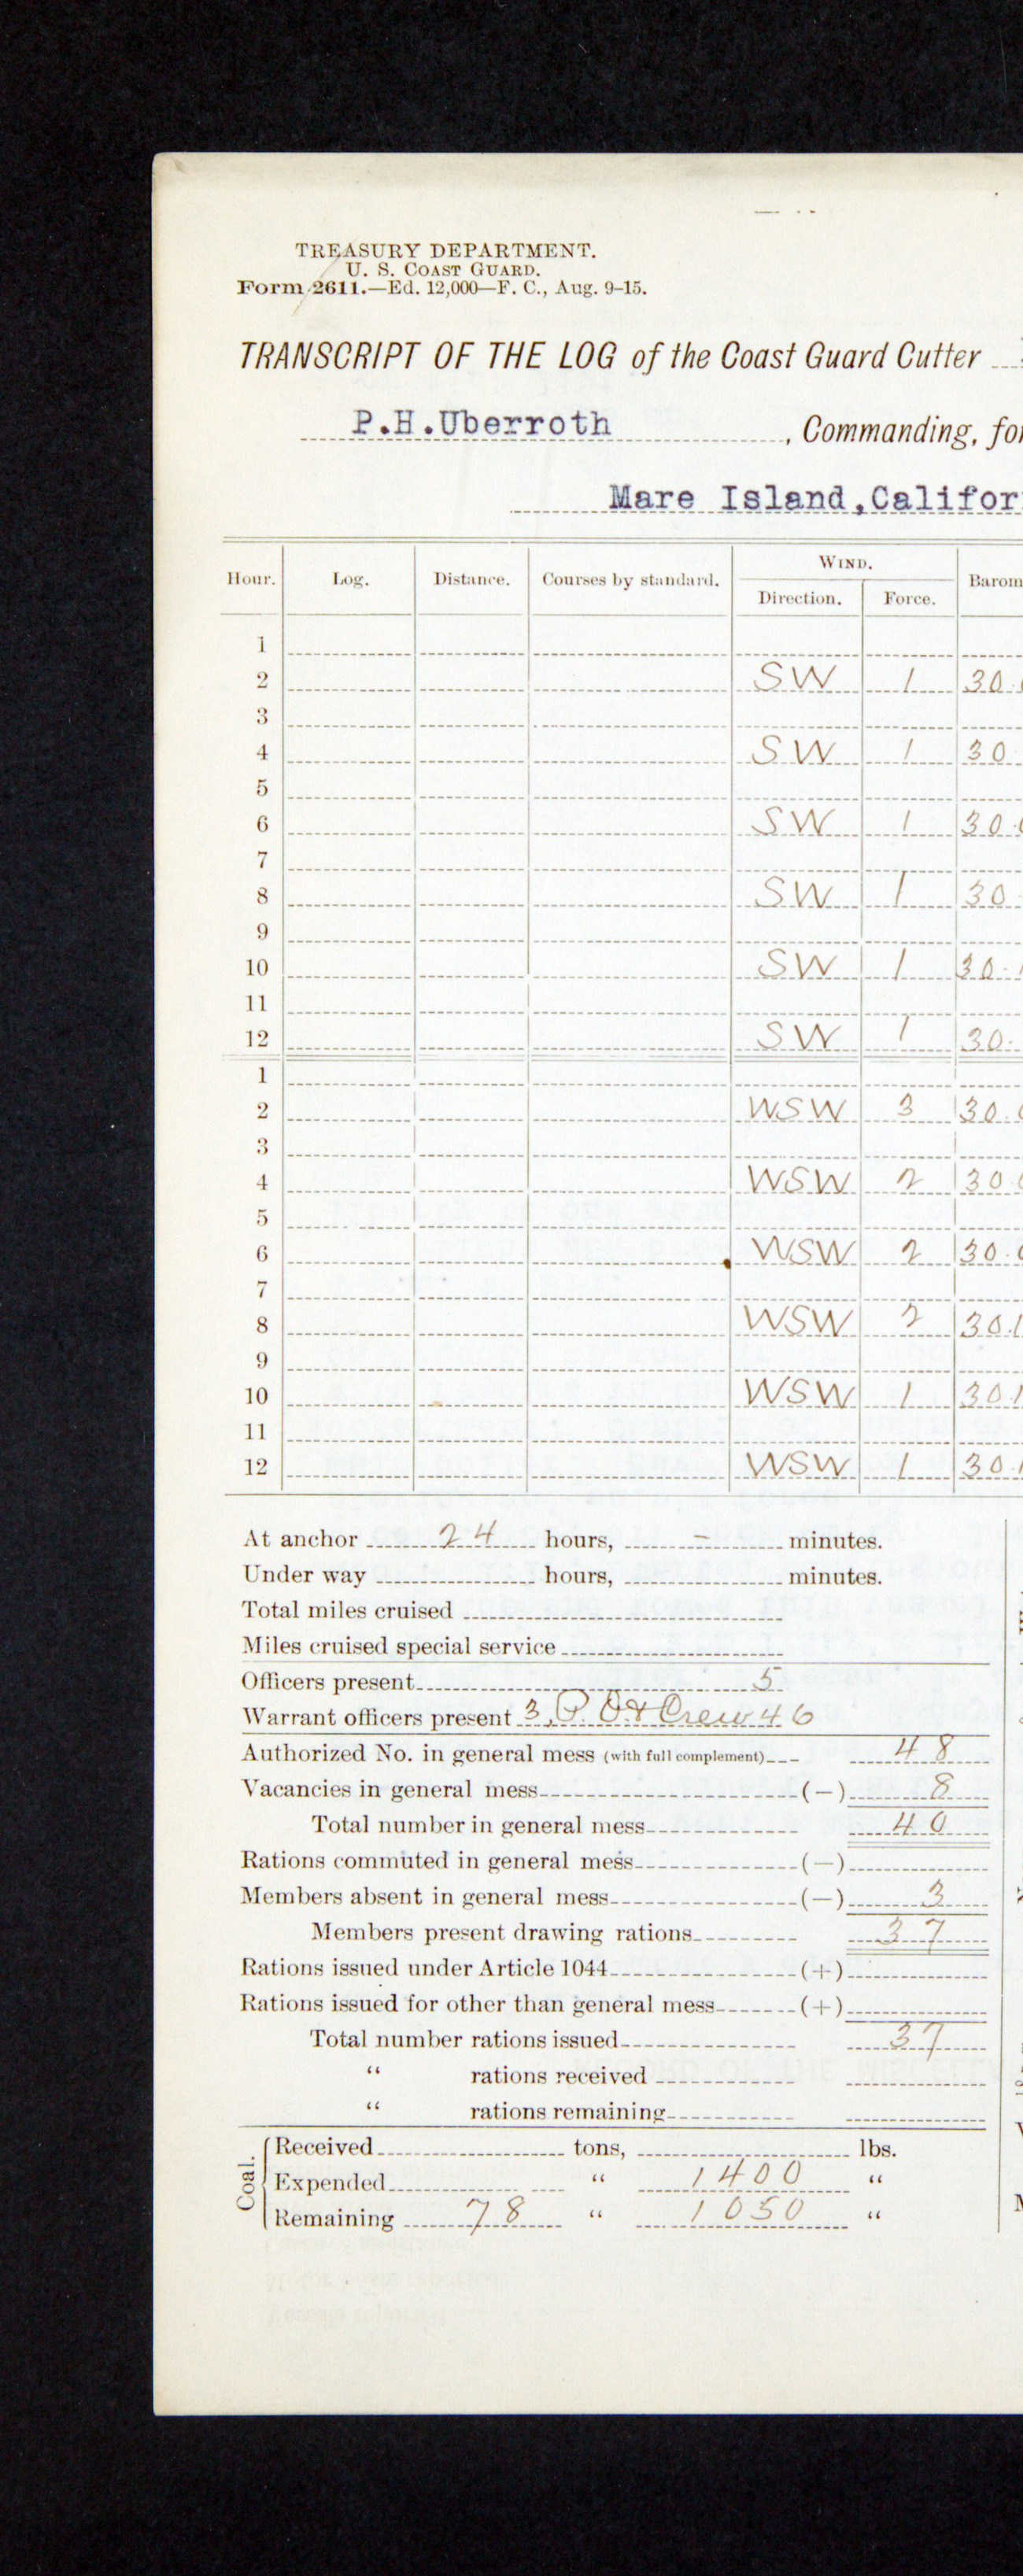 TREASURY DEPARTMENT.
U. S. COAST GUARD.
Form 2611.—Ed. 12,000—F. C., Aug. 9-15.
TRANSCRIPT OF THE LOG of the Coast Guard Cutter
P.H.Uberroth, Commanding, for
Mare Island, Califor
Hour. Log. Distance. Courses by standard. WIND. Barom
Direction. Force.
1
2 SW 1 30.
3
4 SW 1 30
5
6 SW 1 30.
7
8 SW 1 30
9
10 SW 1 30.
11
12 SW 1 30.
1
2 WSW 3 30.0
3
4 WSW 2 30.0
5
6 WSW 2 30.0
7
8 WSW 2 30.1
9
10 WSW 1 30.1
11
12 WSW 1 30.1
At anchor 24 hours, - minutes.
Under way hours, minutes.
Total miles cruised
Miles cruised special service
Officers present 5
Warrant officers present 3, P.O.& Crew 46
Authorized No. in general mess (with full complement) 48
Vacancies in general mess (—) 8
Total number in general mess 40
Rations commuted in general mess (—)
Members absent in general mess (—) 3
Members present drawing rations 37
Rations issued under Article 1044 (+)
Rations issued for other than general mess (+)
Total number rations issued 37
“ rations received
“ rations remaining
Coal.
Received tons, lbs.
Expended “ 1400 “
Remaining 78 “ 1050 “